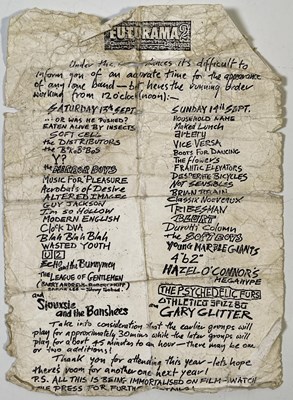 FUTURAMA 2
Under the circumstances it's difficult to
inform you of an accurate time for the appearance
of any one band - but here's the running order
working from 12 o'clock (noon):-
SATURDAY 13th SEPT.
- OR WAS HE PUSHED?
EATEN ALIVE BY INSECTS
SOFT CELL
the DISTRIBUTORS
Y?
the MIRROR BOYS
MUSIC FOR PLEASURE
Acrobats of Desire
ALTERED IMAGES
GUY JACKSON
I'm so HOLLOW
MODERN ENGLISH
CLOCK DVA
Blah Blah Blah
WASTED YOUTH
U2
ECHO and the Bunnymen
The LEAGUE OF GENTLEMEN
and Siouxsie and the Banshees
SUNDAY 14 SEPT.
HOUSEHOLD NAME
Naked Lunch
Artery
VICE VERSA
BOOTS FOR DANCING
The Flowers
FRANTIC ELEVATORS
DESPERATE BICYCLES
NOT SENSIBLES
BRIAN BRAIN
CLASSIX NOUVEAUX
TRIBESMAN
BLURT
Durutti Column
The SOFT BOYS
YOUNG MARBLE GIANTS
4"be2"
HAZEL O'CONNOR'S
MEGAHYPE
THE PSYCHEDELIC FURS
ATHLETICO SPIZZ 80
and GARY GLITTER
Take into consideration that the earlier groups will
play for approximately 30 mins while the later groups will
play for about 45 minutes to an hour - There may be one
or two additions!
Thank you for attending this year - lets hope
there's room for another one next year!
P.S. ALL THIS IS BEING IMMORTALISED ON FILM - WATCH
THE PRESS FOR FURTHER